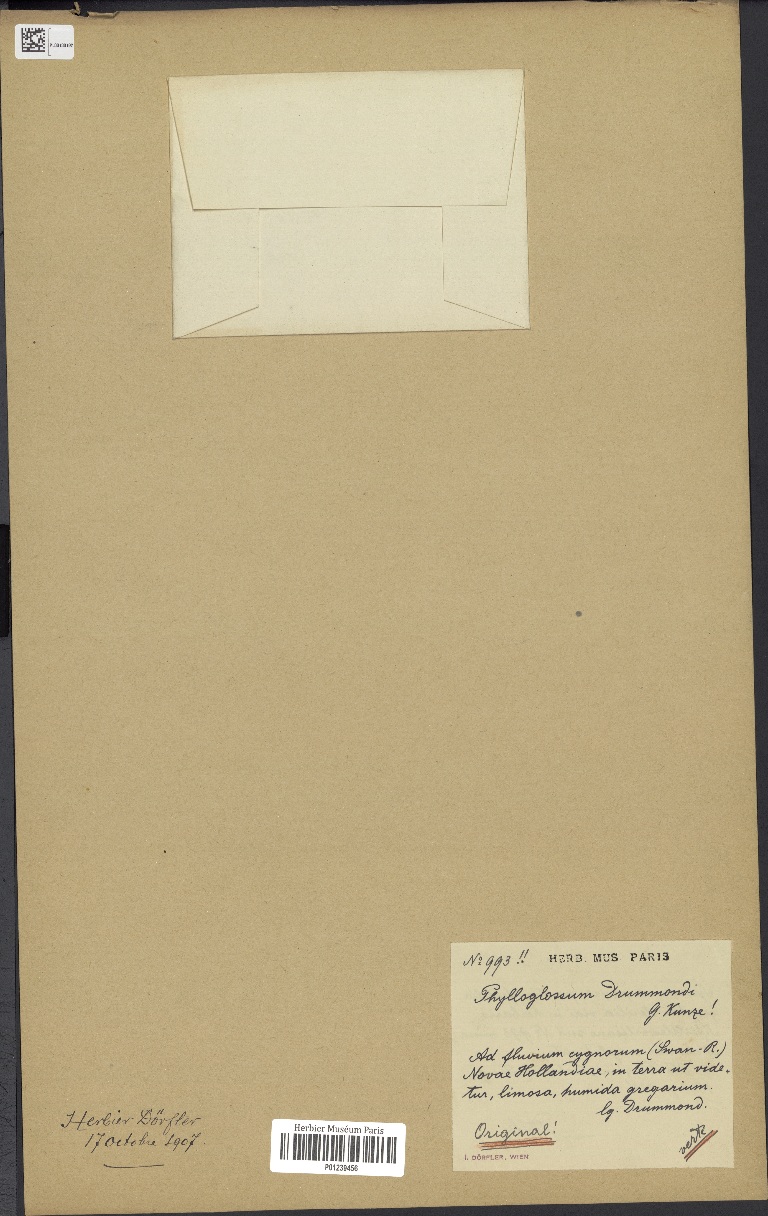 Nº 993 !!
HERB. MUS PARIS
Phylloglossum Drummondi
G. Kunze !
Ad fluvium cygnorum (Swan-R.)
Novae Hollandiae, in terra ut vide-
tur, limosa, humida gregarium.
lg. Drummond.
Original !
I. DÖRFLER, WIEN
Herbier Dörfler
17 octobre 1907.
Herbier Muséum Paris
P01239456